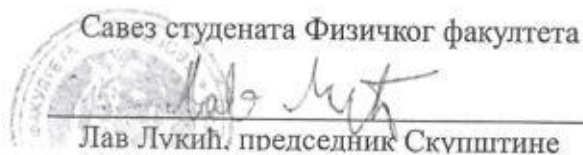 Савез студената Физичког факултета
Лав Лукић, председник Скупштине